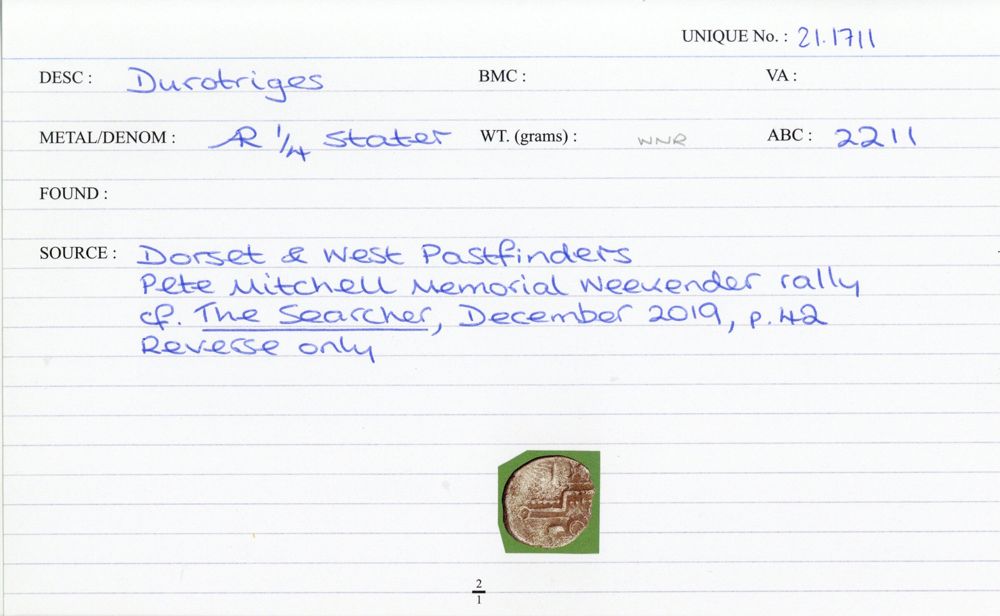 UNIQUE No. : 21.1711
DESC : Durotriges BMC : VA :
METAL/DENOM : AR 1/4 Stater WT. (grams) : WNR ABC : 2211
FOUND :
SOURCE : Dorset & West Pastfinders
Pete Mitchell Memorial Weekender rally
cf. The Searcher, December 2019, p.42
Reverse only
2
1